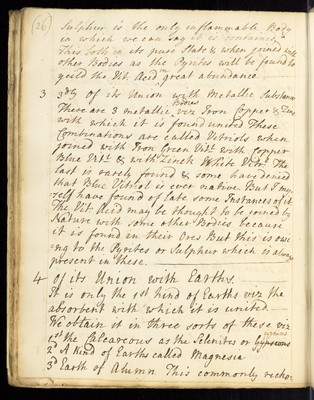 (26)
Sulphur is the only inflammable Body
in which we can say it is contained
This both in its pure State & when joined with
other Bodies as the Pyrites will be found to
yeild the Vit. Acid in great abundance
3 3dly of its Union with Metallic Substances
There are 3 metallic Bodies viz Iron Copper & Zinc
with which it is found united These
Combinations are called Vitriols when
joined with Iron Green Vitl. with Copper
Blue Vitl. & with Zinck White Vitrl. The
last is rarely found & some have denied
that Blue Vitriol is ever native But I my
self have found of late some Instances of it
The Vit. Acid may be thought to be joined by
Nature with some other Bodies because
it is found in their Ores But this is owe
=ing to the Pyrites or Sulphur which is always
present in these.
4 of its Union with Earths.
It is only the 1st kind of Earths viz the
absorbent with which it is united
We obtain it in three sorts of these viz
1st the Calcareous as the Selenites or Gypseous
2d A Kind of Earths called Magnesia
3d Earth of Alumn This commonly recko